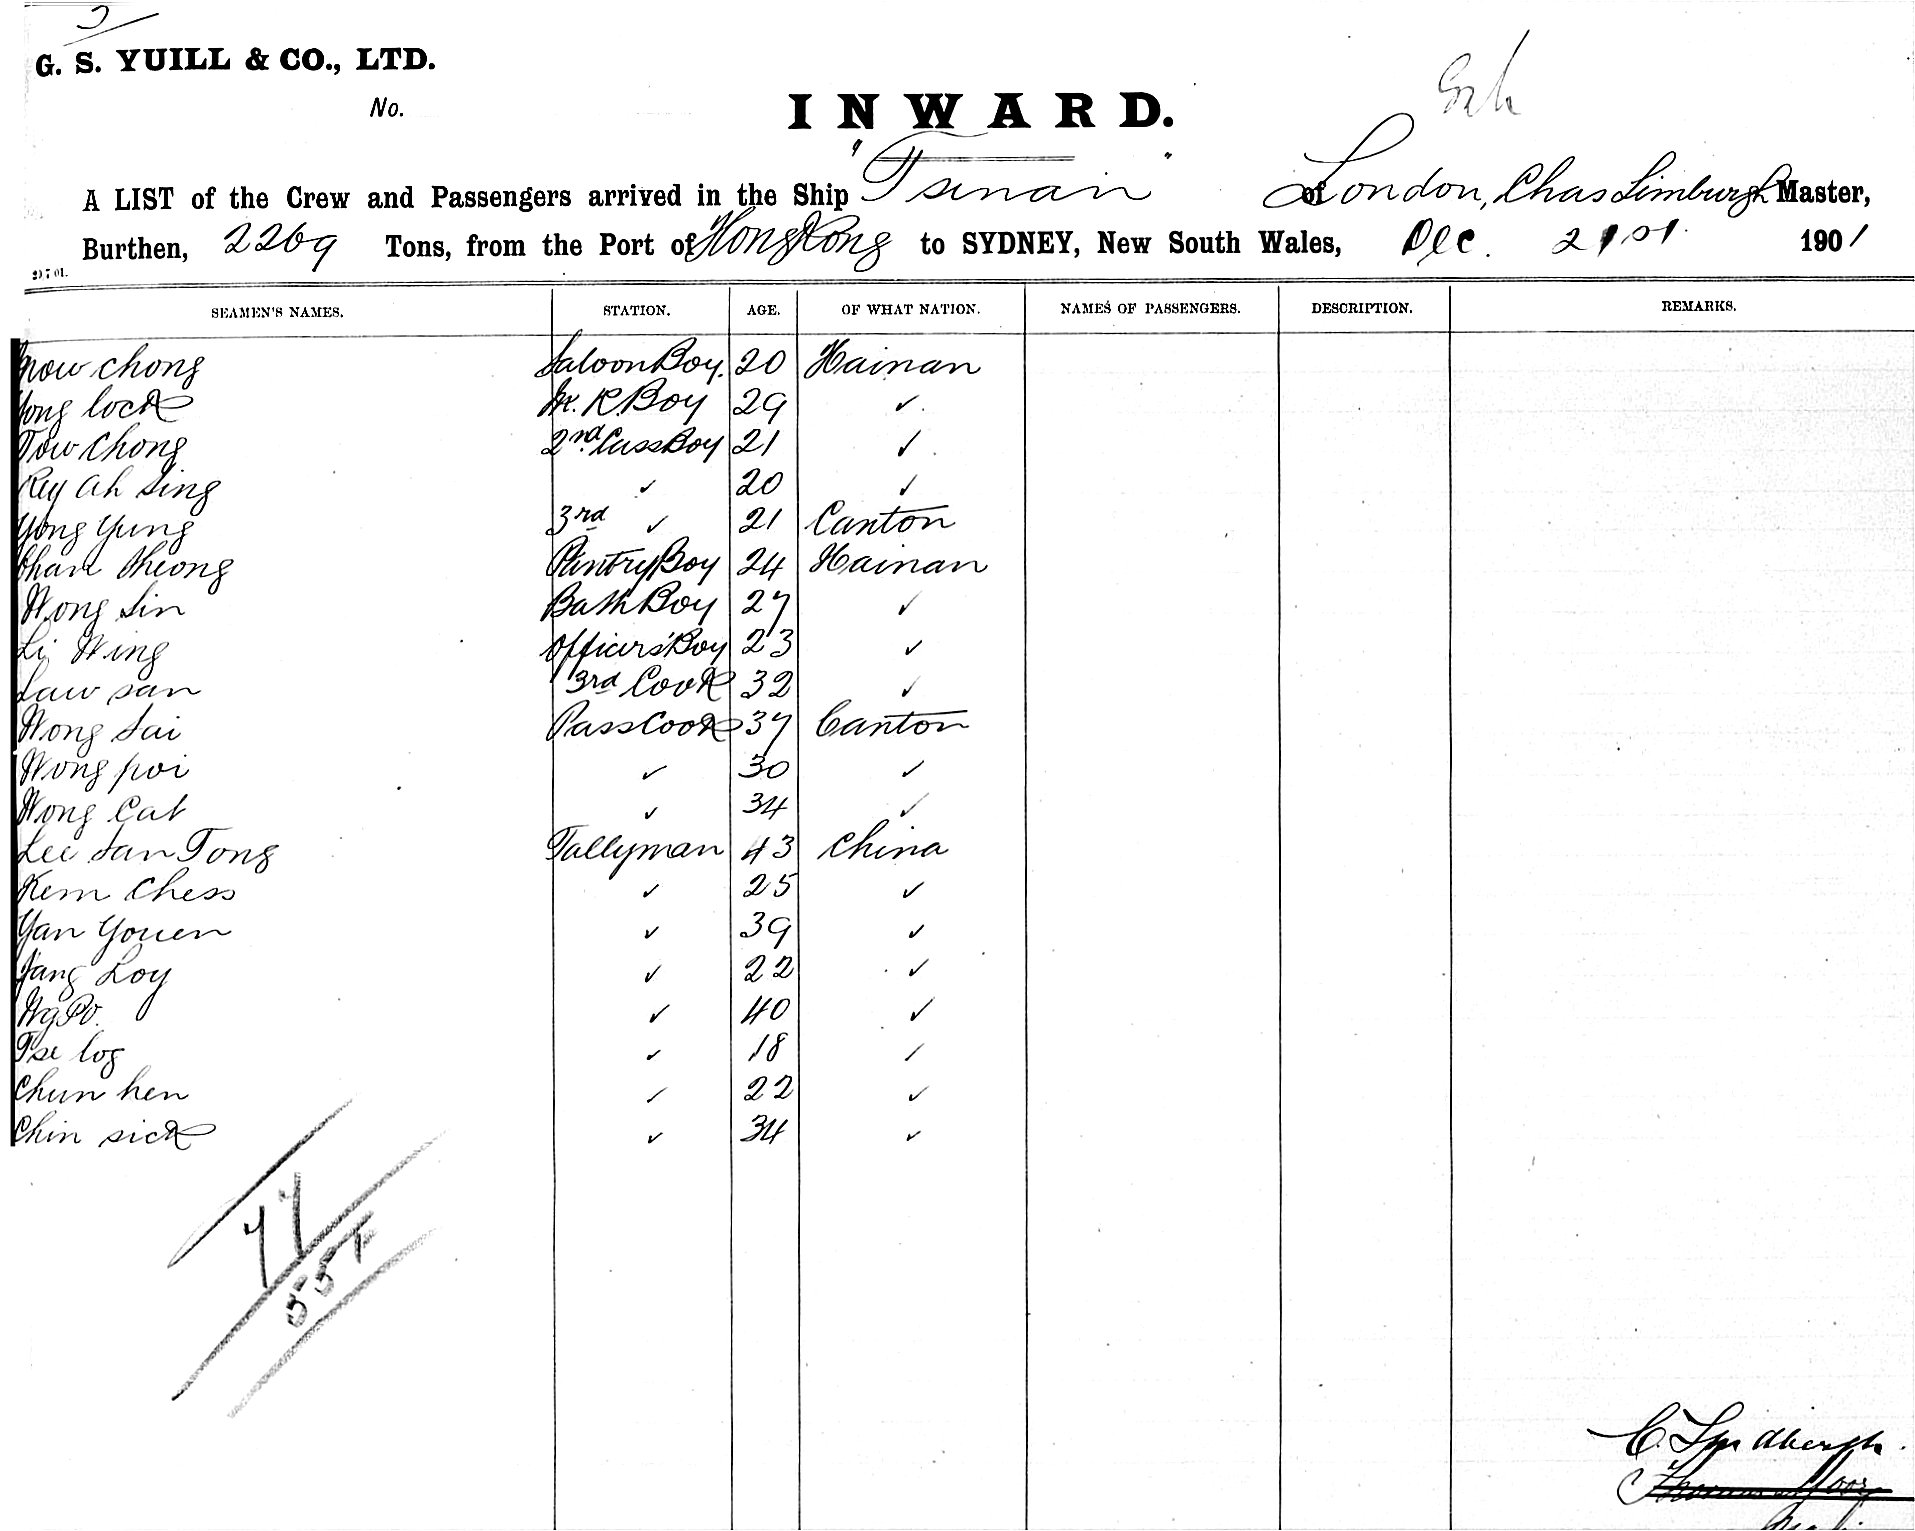 G. S. YUILL & CO., LTD.
No.
INWARD.
A LIST of the Crew and Passengers arrived in the Ship "Tsinan" of London, Chas Master,
Burthen, 2269 Tons, from the Port of Hong Kong to SYDNEY, New South Wales, Dec. 21st 1901
SEAMEN'S NAMES. STATION. AGE. OF WHAT NATION. NAMES OF PASSENGERS. DESCRIPTION. REMARKS.
Mow Chong Saloon Boy. 20 Hainan
Yong lock R. Boy 29 ✓
Tow Chong 2nd Class Boy 21 ✓
Ah Sing ✓ 20 ✓
Yong Yung 3rd ✓ 21 Canton
Chan Pantry Boy 24 Hainan
Wong Sin Bath Boy 27 ✓
Li Wing Officers' Boy 23 ✓
Law san 3rd Cook 32 ✓
Wong Sai Pass Cook 37 Canton
Wong poi ✓ 30 ✓
Wong Cat ✓ 34 ✓
Lee San Tong Tallyman 43 China
Kem Chess ✓ 25 ✓
Yan Youen ✓ 39 ✓
Yang Loy ✓ 22 ✓
Ng Po. ✓ 40 ✓
Tse log ✓ 18 ✓
Chun hen ✓ 22 ✓
Chin sick ✓ 34 ✓
77
55
C. Lindbergh.